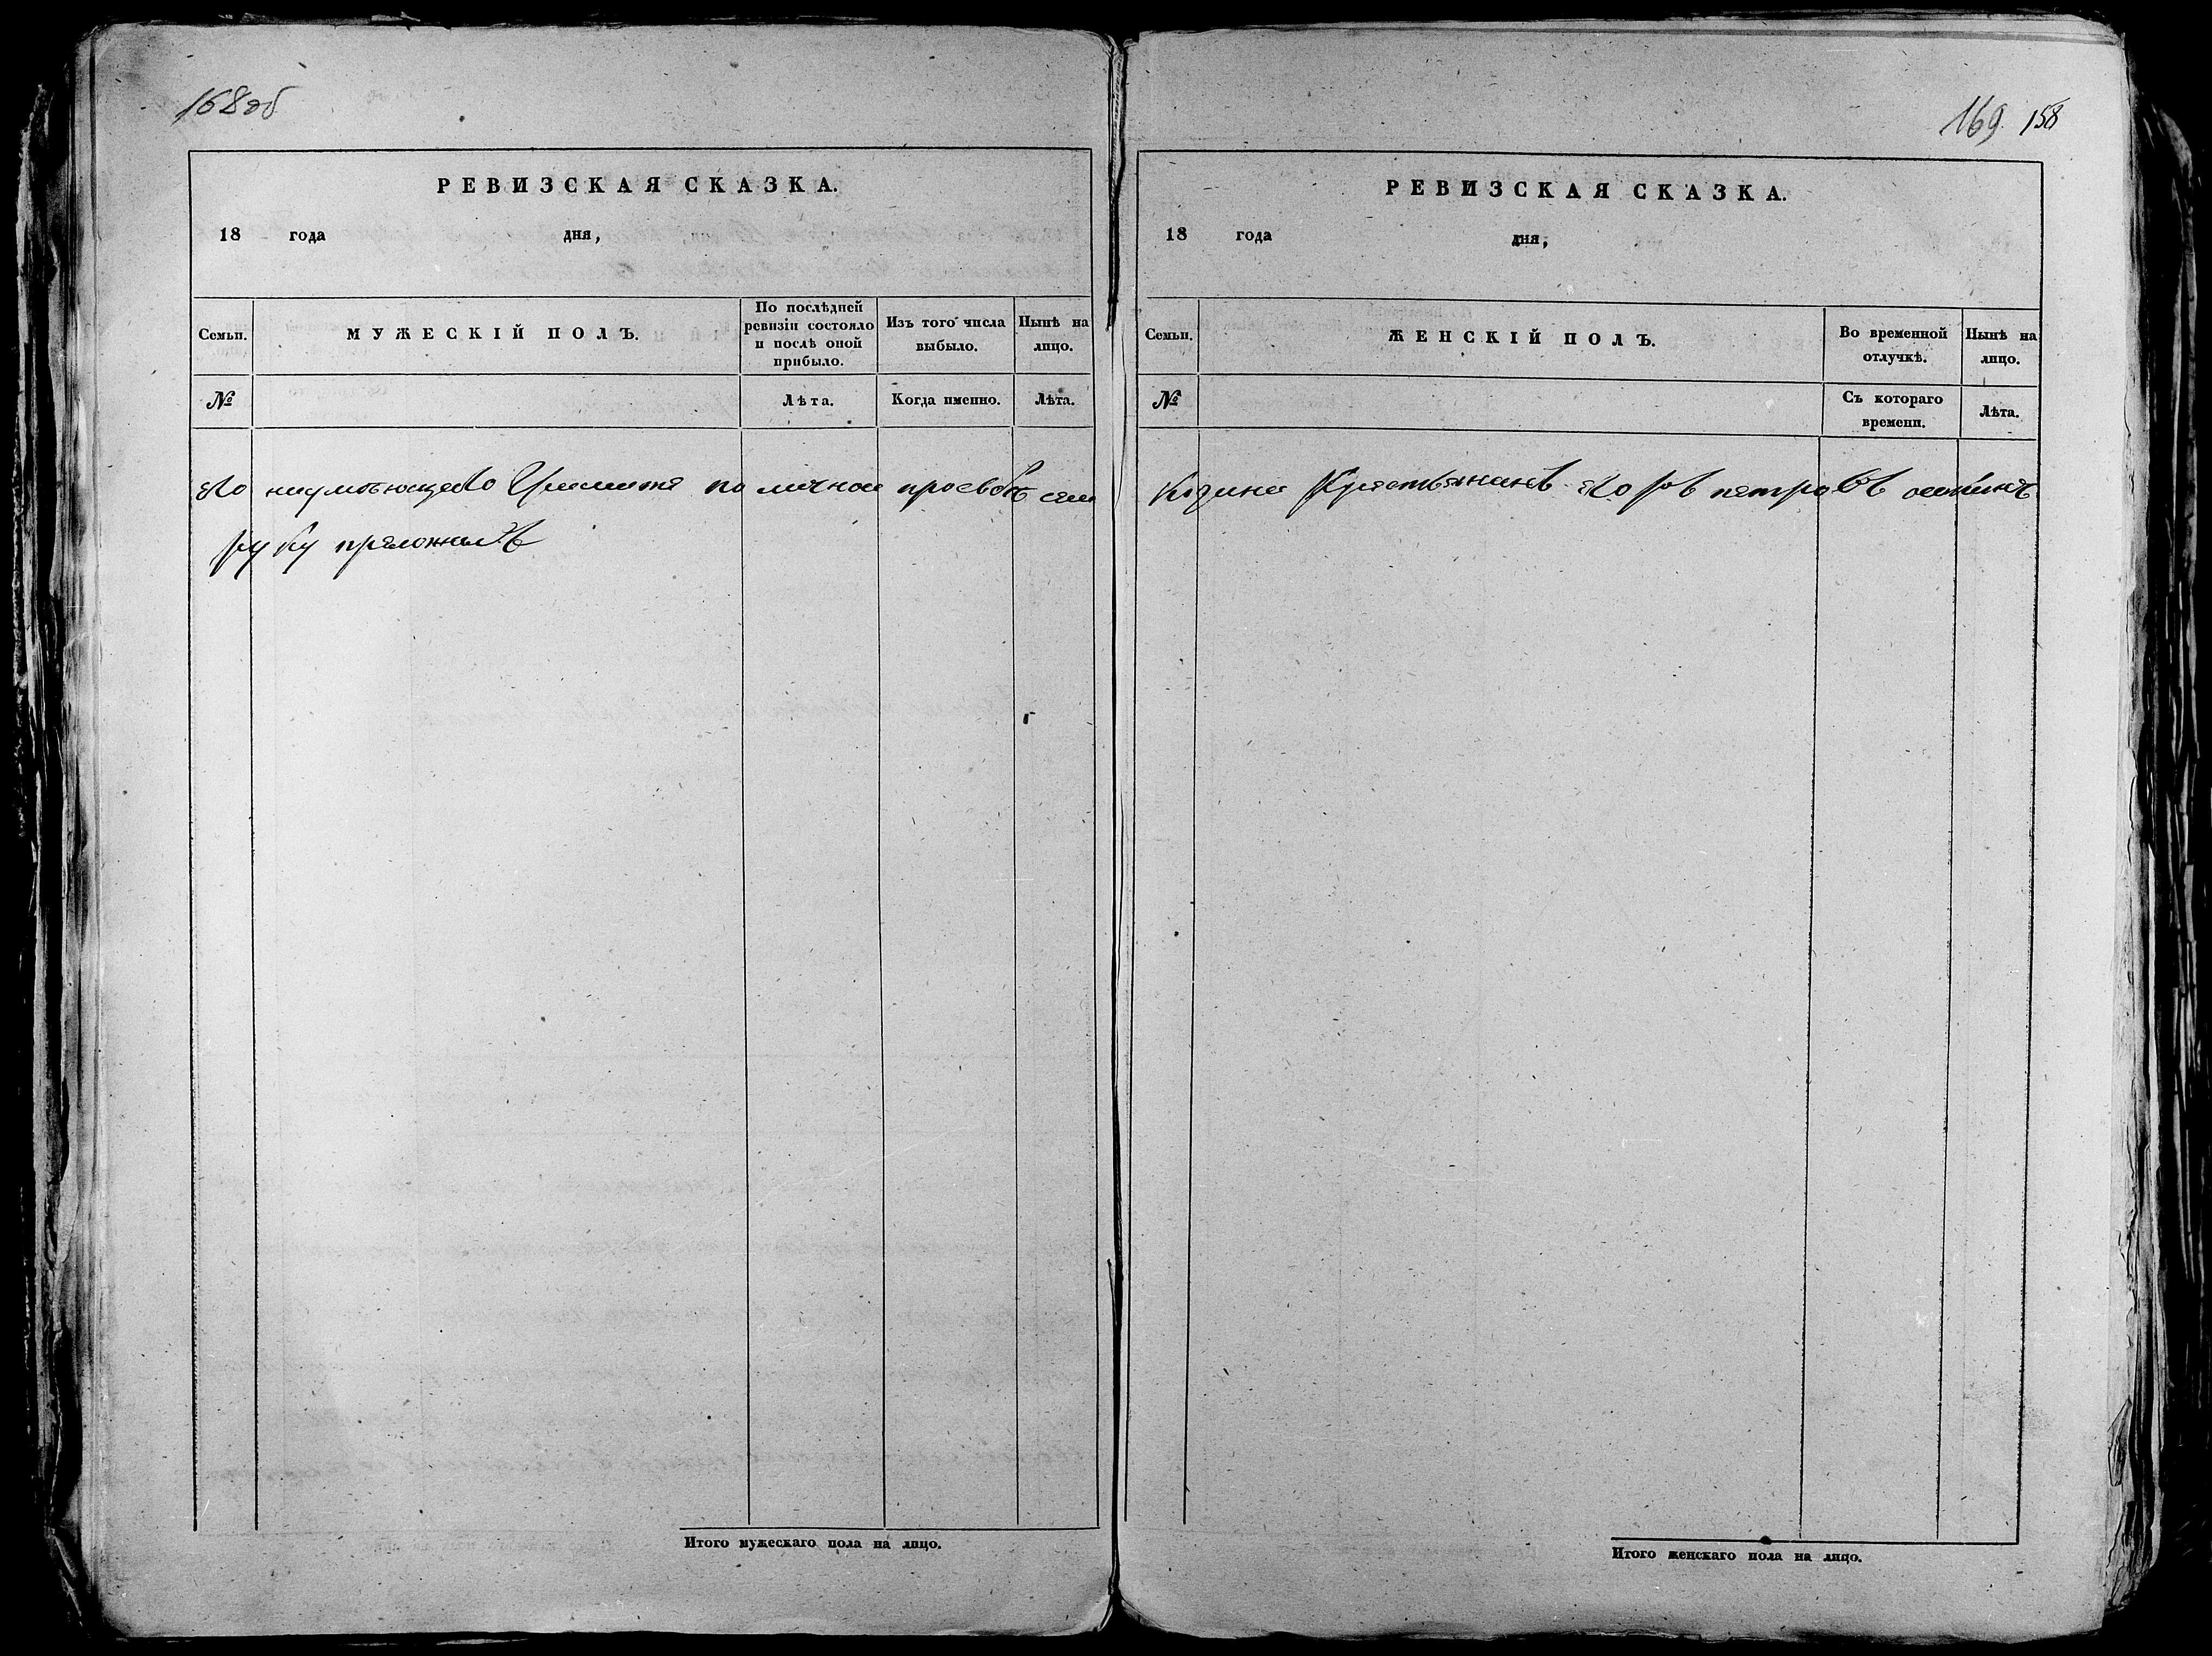 168 об
РЕВИЗСКАЯ СКАЗКА.
18 года дня,
Семьи.
МУЖЕСКІЙ ПОЛЪ.
По послѣдней ревизіи состояло и послѣ оной прибыло.
Изъ того числа выбыло.
Нынѣ на лицо.
№
Лѣта.
Когда именно.
Лѣта.
его неумѣющево Грамите по личнои прозбѣ
руку приложилъ
Итого мужескаго пола на лицо.
169. 158
РЕВИЗСКАЯ СКАЗКА.
18 года дня,
Семьи.
ЖЕНСКІЙ ПОЛЪ.
Во временной отлучкѣ.
Нынѣ на лицо.
№
Съ котораго времени.
Лѣта.
Крестьянинъ Егоръ петровъ
Итого женскаго пола на лицо.